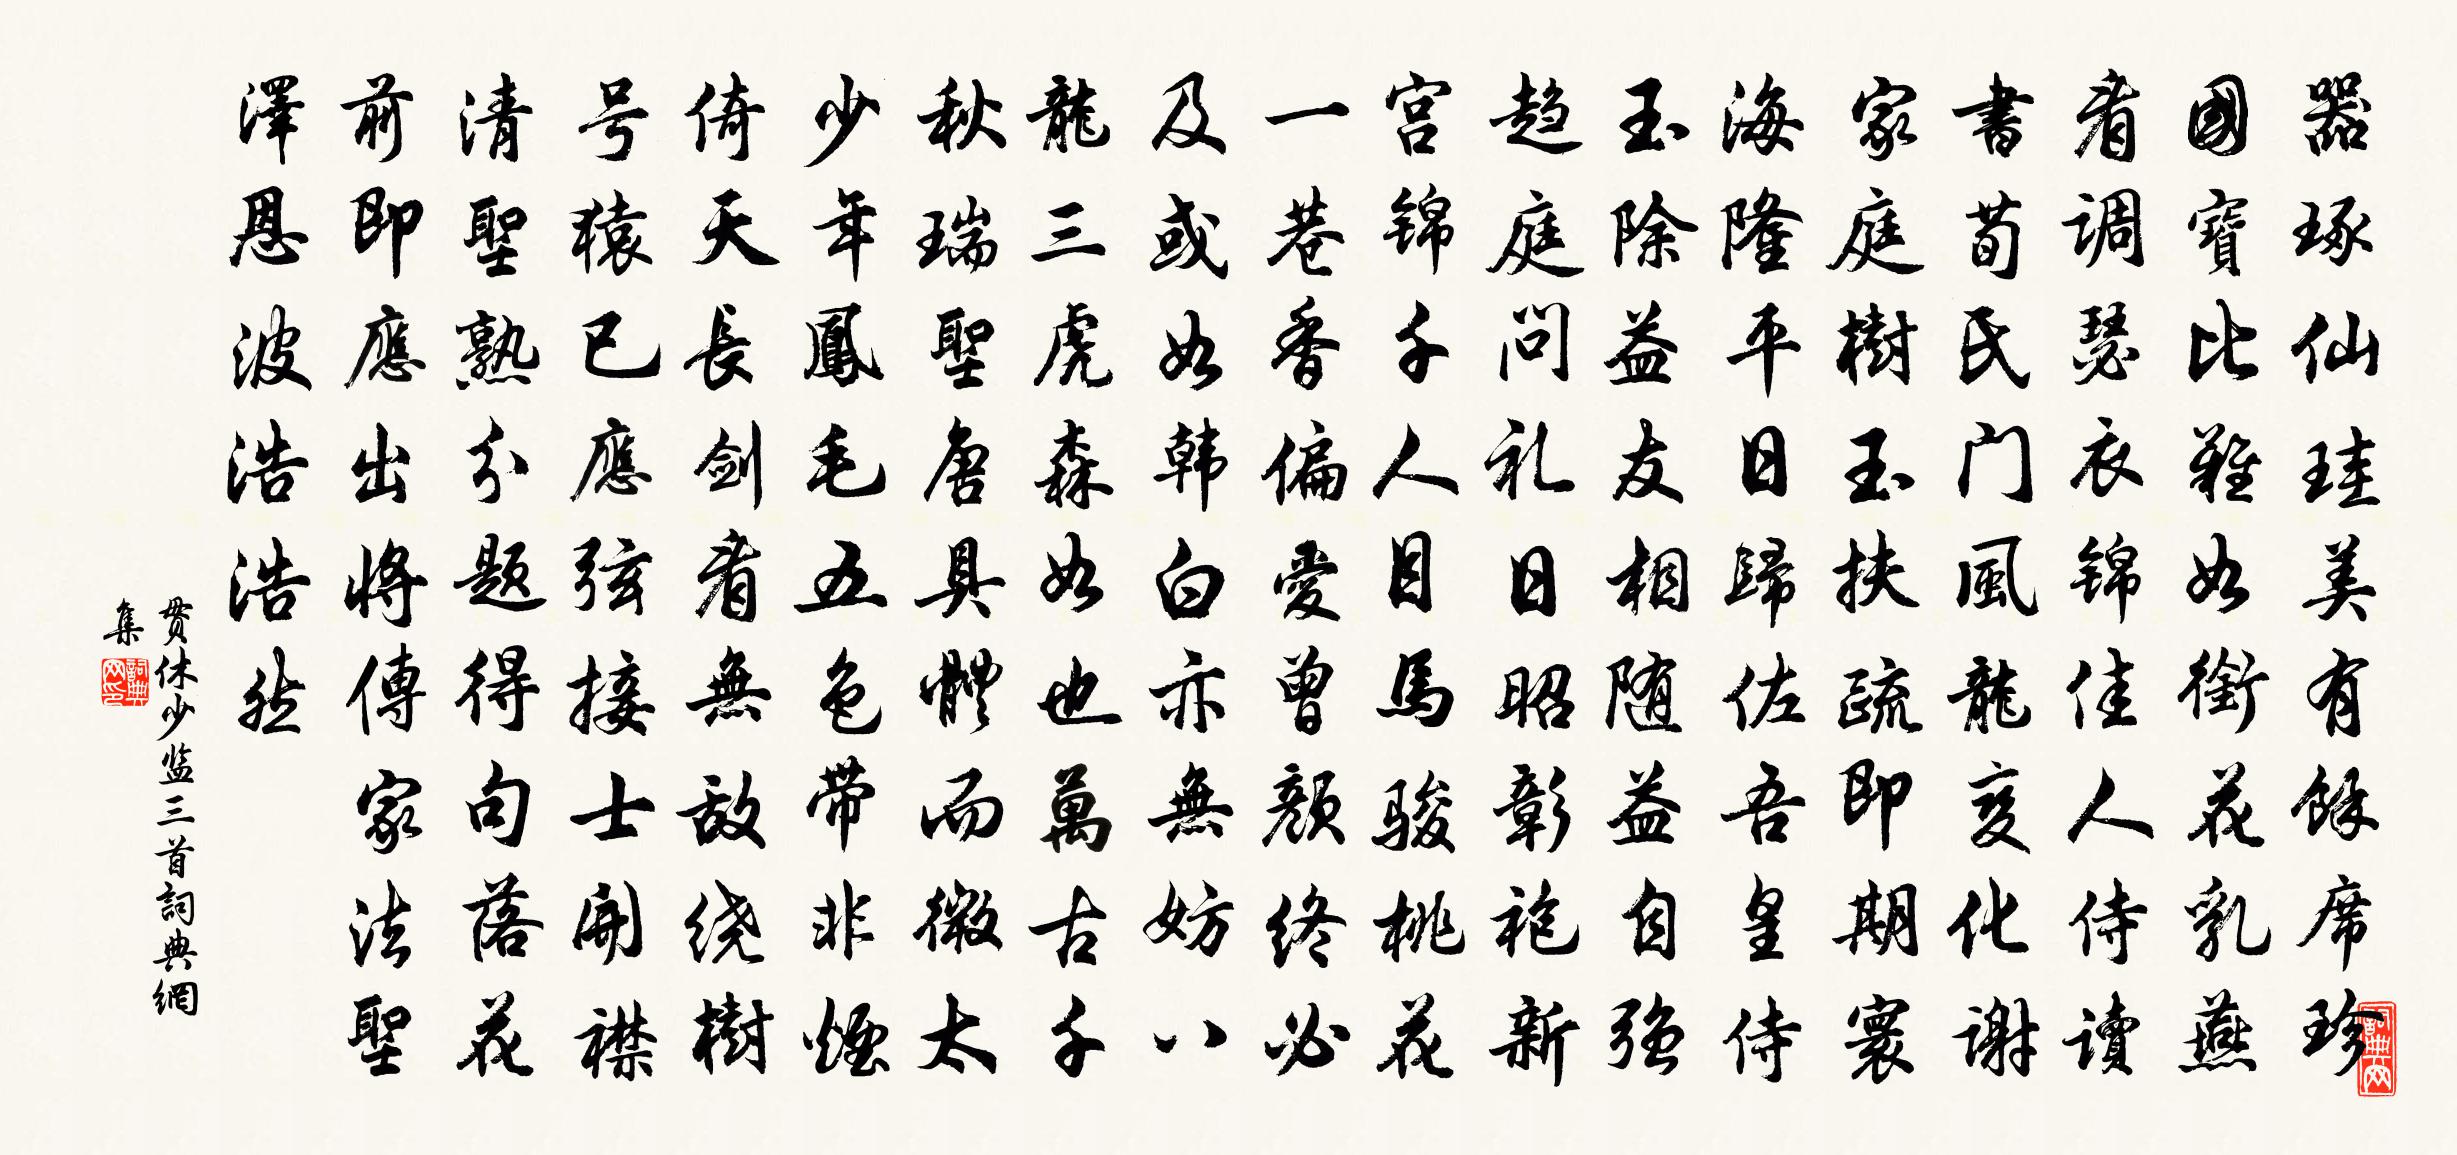 器琢仙珪美有餘席珍
國寶比難如銜花乳燕
看調瑟衣锦佳人侍讀
書荀氏门風龍變化謝
家庭樹玉扶疏即期寰
海隆平日歸佐吾皇侍
玉除益友相随益自强
趋庭问礼日昭彰袍新
宫锦千人目馬骏桃花
一巷香偏愛曾顏终必
及或如韩白亦無妨八
龍三虎森如也萬古千
秋瑞聖唐具體而微太
少年鳳毛五色带非煙
倚天長剑看無敌绕樹
号猿已應弦接士開襟
清聖熟分题得句落花
前即應出將傳家法聖
澤恩波浩浩然
贯休少监三首詞典網
集
詞典网
詞典网印